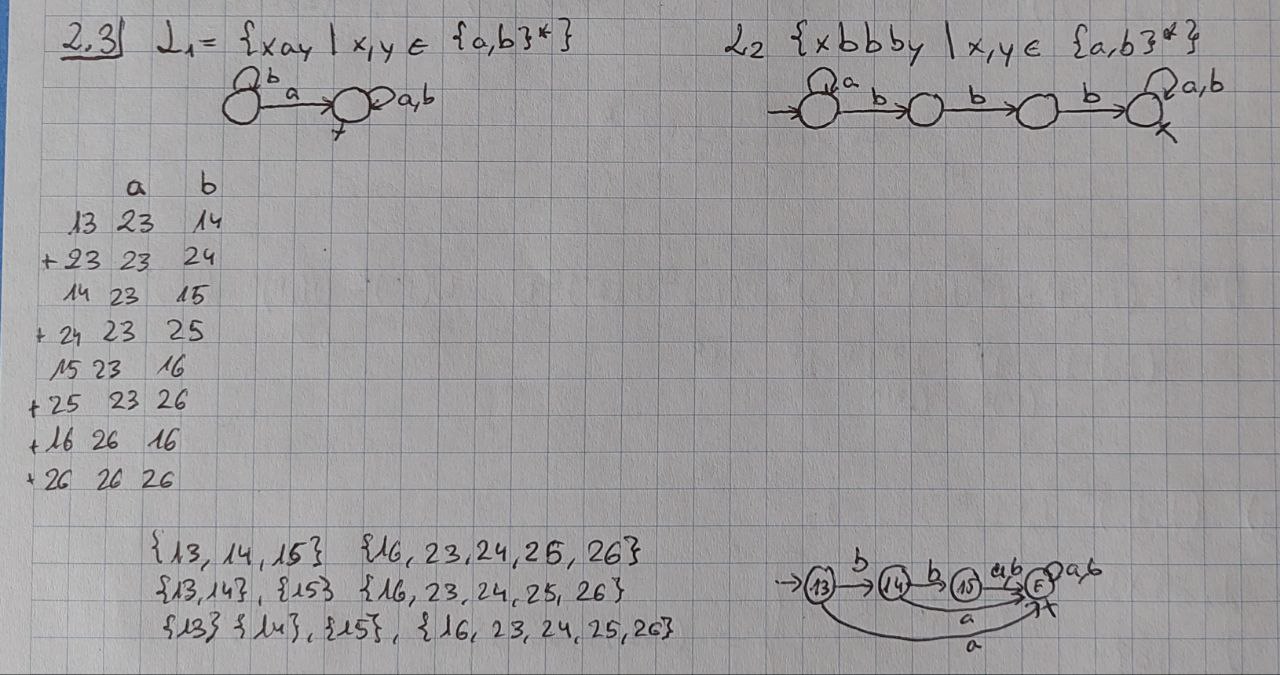 2.3) L₁ = {xay | x,y ∈ {a,b}*} L₂ {xbbby | x,y ∈ {a,b}*}
b a a,b a b b b a,b
a b
13 23 14
+ 23 23 24
14 23 15
+ 24 23 25
15 23 16
+ 25 23 26
+ 16 26 16
+ 26 26 26
{13, 14, 15} {16, 23, 24, 25, 26}
{13, 14}, {15} {16, 23, 24, 25, 26}
{13} {14}, {15}, {16, 23, 24, 25, 26}
13 b 14 b 15 a,b F a,b
a
a